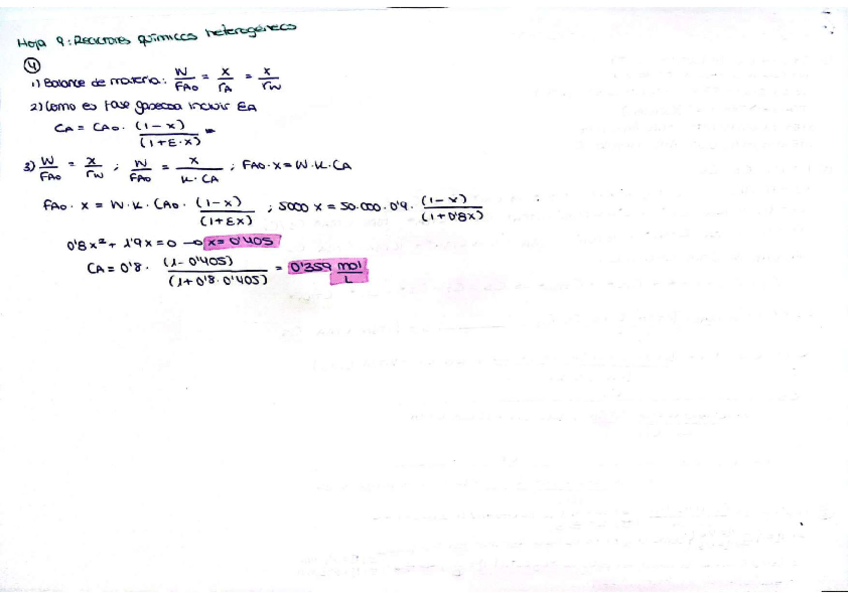 Hoja 9: Reactores químicos heterogéneos
④
1) Balance de materia: W/FAO = X/rA = X/rW
2) Como es fase gaseosa incluir EA
CA = CAO · (1-X)/(1+E·X) =
3) W/FAO = X/rW ; W/FAO = X/(K·CA) ; FAO·X = W·K·CA
FAO · X = W·K·CAO · (1-X)/(1+EX) ; 5000 X = 50.000·0'9 · (1-X)/(1+0'8X)
0'8X² + 1'9X = 0 → X = 0'405
CA = 0'8 · (1-0'405)/(1+0'8·0'405) = 0'359 mol/L